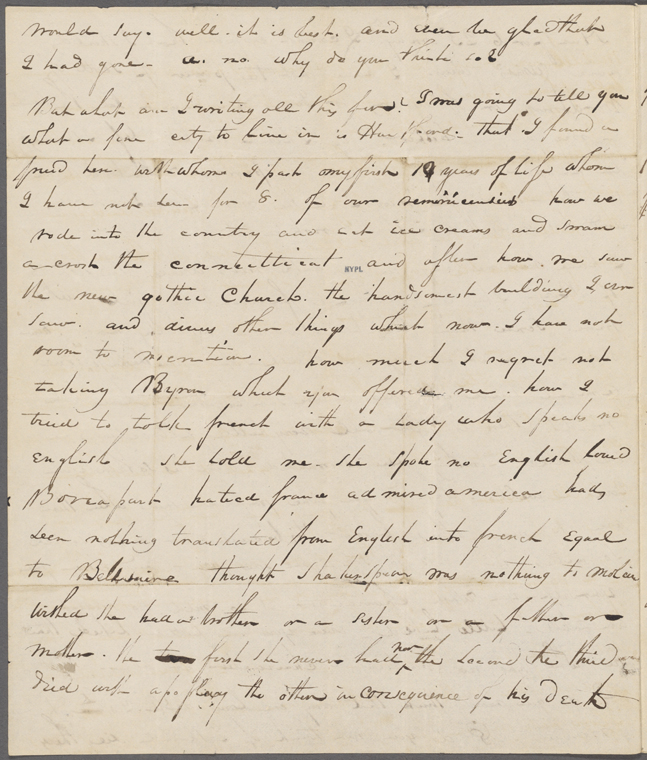 would say. well. it is best. and even be glad that
I had gone. no. why do you think so?
But what am I writing all this for? I was going to tell you
what a fine city to live in is Hartford. that I found a
frend here. with whom I past my first 10 years of life whom
I have not seen for 8. of our reminicensies how we
rode into the country and eat ice creams and swam
a-cross the connetticut and after how we saw
NYPL
the new gothic Church. the handsomest building I ever
saw. and divers other things which now. I have not
room to mention. how much I regret not
taking Byron which you offered me. how I
tried to talk french with a Lady who speaks no
English She told me. she spoke no English loved
Bonapart hatied france admired america had
seen nothing translated from English into french Equal
to thought Shakespear was nothing to
wished she had a brother or a sister or a father or
mother. the first she never had nor the second the third
died with apoplexy the other in consequience of his Death